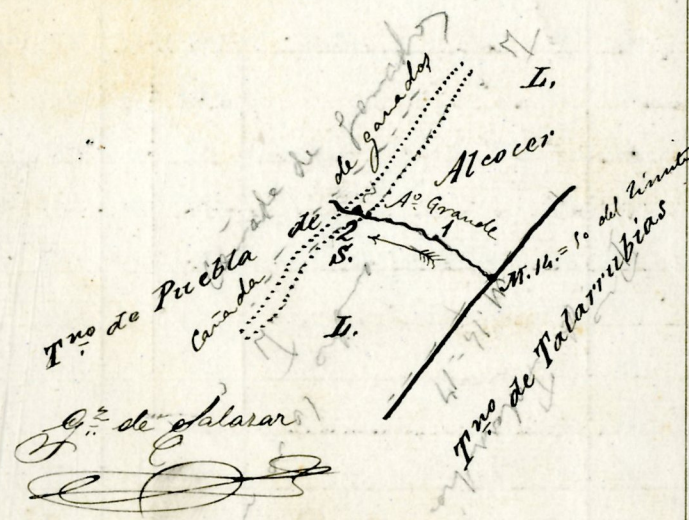 L.
Tno de Puebla de Alcocer
Cañada de ganados
Ao. Grande
1
2
S.
L.
M. 14. = 1o del límite
Tno de Talarrubias
Gz de Salazar